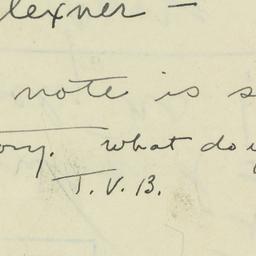 lexner —
note is s
ory. what do y
T. V. B.